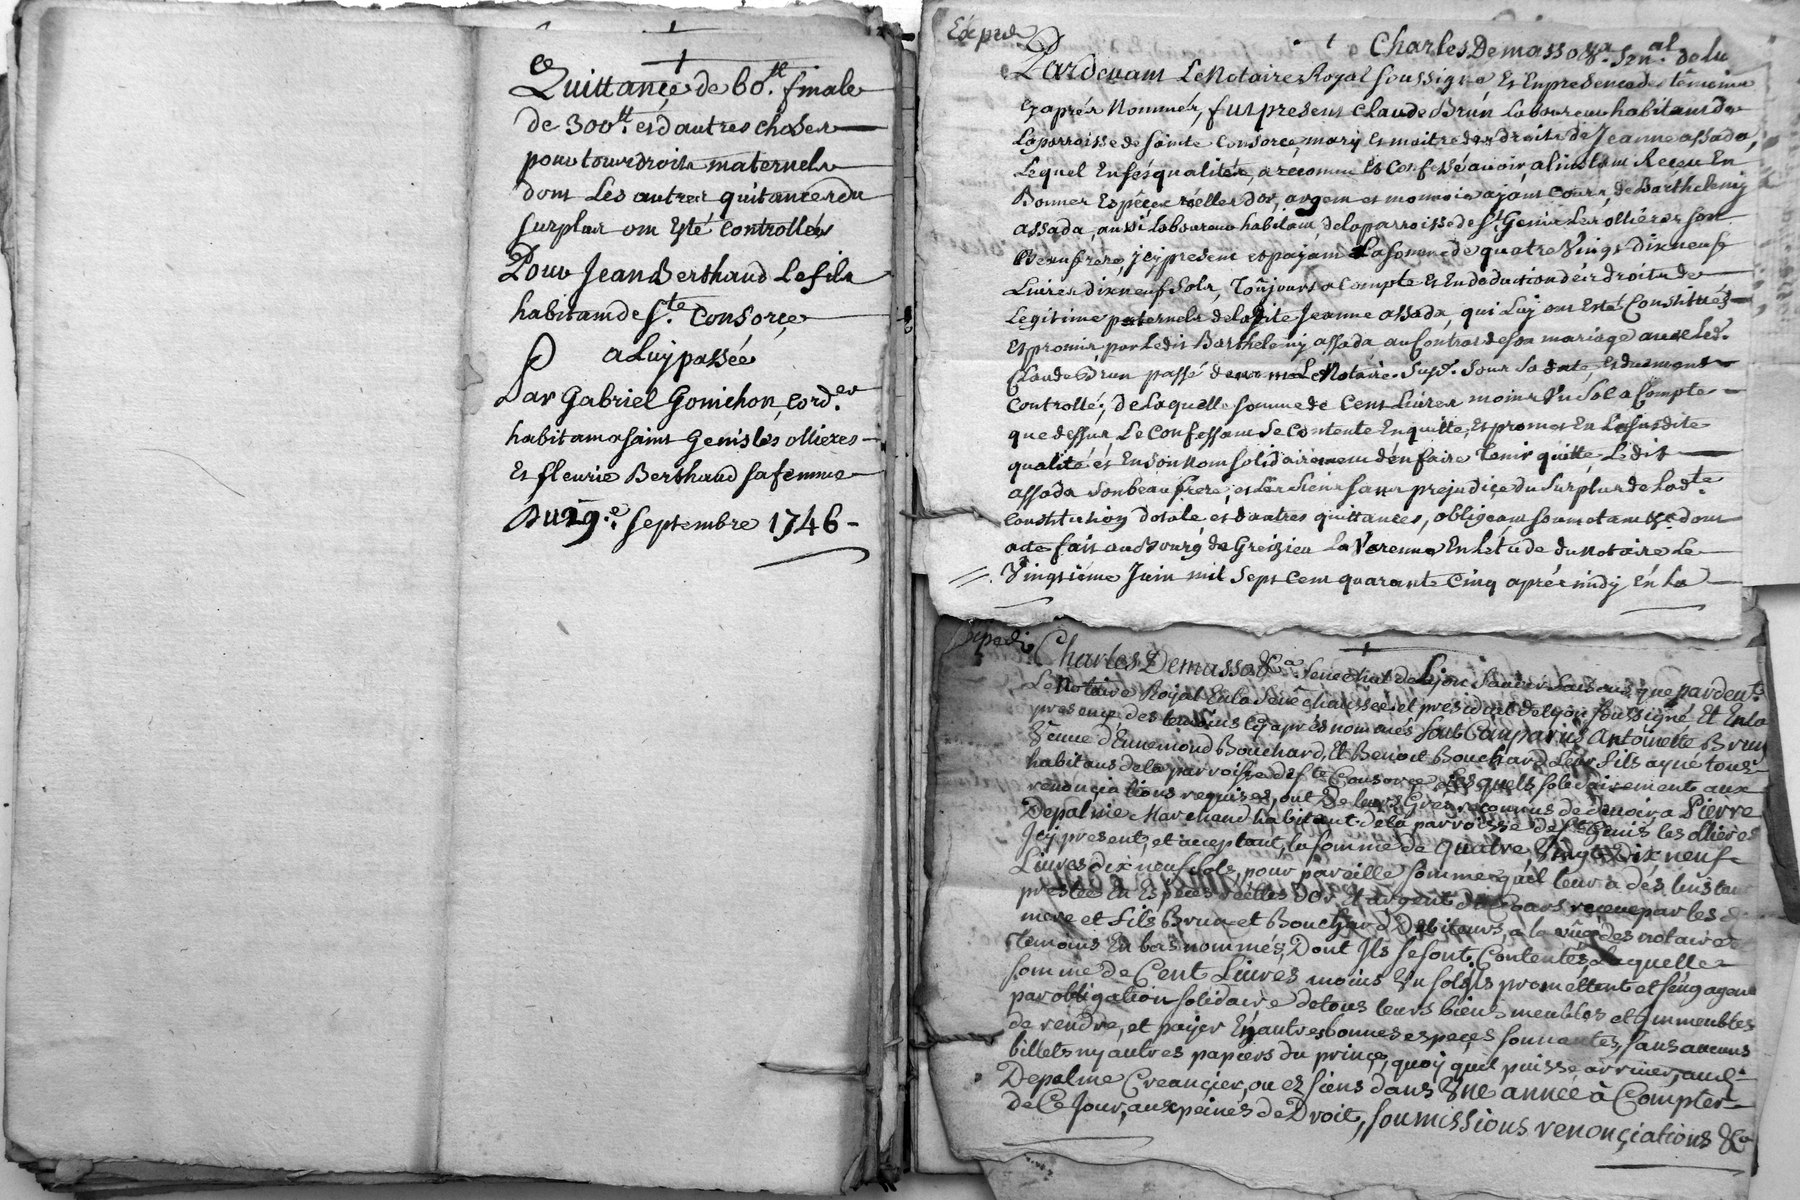 ce
Quittance de 60.lt finale
de 300lt. et d'autres choses
pour tous droits maternels
dont Les autres quitances du
surplus ont Esté Controllées
Pour Jean Berthaud Le fils
habitant de Ste. Consorçe
a Luy passée
Par Gabriel Gonichon, cord.er
habitant a saint Genis les ollieres
Et fleurie Berthaud sa femme
Du 29.e septembre 1746
Expedié
Charles Demasso &a. Sen.al de Lu
Pardevant Le Notaire Royal soussigné Et En presence des témoins
Cy après Nommés, fut present Claude Brun Laboureur habitant de
La parroisse de sainte Consorce, mary Et maitre des droits de Jeanne assada,
Lequel En sés qualités, a reconnu Et Confessé avoir a linstant Reçeu En
Bonnes Espêces réelles d'or, argent et monnoie ayant cours, de Barthelemy
assada, aussi Laboureur habitant de la parroisse de St Genis Les ollières son
Beaufrere, icy present et payant La somme de quatre Vingt Dix neuf
Livres dix neuf sols, Toûjours a Compte Et En deduction des droits de
Legitime paternels de ladite Jeanne assada, qui Luy ont Esté Constitués
Et promis par Ledit Barthelemy assada au Contrat de son mariage avec Led.
Claude Brun passé devant Le Notaire. Susd. Sous Sa date, Et duement
Controllé; de Laquelle somme de Cent Livres moins Un Sol a Compte
que dessus, Le Confessant Se Contente En quitte, Et promet En La susdite
qualité et En son nom solidairement d'en faire Tenir quitte Ledit
assada Son beaufrere, et Les Siens sans prejudiçe du Surplus de Ladte
Constitution dotale et d'autres quittances, obligeant soumetant &c. dont
acte fait au Bourg de Greizieu La Varenne En L'étude du Notaire Le
Vingtiéme Juin mil Sept Cent quarante Cinq après midy En La
Expedié
Charles Demasso &a. Senechal de Lyon Savoir Faisons que pardevt.
Le Notaire Royal En la Sénéchaussée et présidial de Lyon soussigné Et En la
presence des temoins Cy après nommés Sont Comparus Antoinette Brun
Veuve d'Ennemond Bouchard, Et Benoit Bouchard Leur Fils ayné tous
habitans de la parroisse de ste Consorce Lesquels solidairement aux
renonciations requises, ont de leurs Grés reconnus de devoir a Pierre
Depalme Marchand habitant de la parroisse de st Genis les ollieres
Icy present, et acceptant, la somme de quatre Vingts Dix neuf
Livres dix neuf sols, pour pareille somme qu'il leur a dés linstant
prestée En Espèces réelles d'or Et argent du Cours reçeue par les d.
mere et Fils Brun et Bouchard Debiteurs, a la vûe des notaire
Temoins En bas nommés, Dont Ils se sont Contentés, Laquelle
somme de Cent Livres moins Un sol Ils promettent et s'engagent
par obligation solidaire de tous leurs biens meubles et Immeubles
de rendre, et payer En autres bonnes especes sonnantes, sans aucuns
billets ny autres papiers du prince, quoy quil puisse arriver, aud.
Depalme Creancier, ou Es siens dans Une année à Compter
de Ce Jour, aux peines de Droit, soumissions renonciations &a